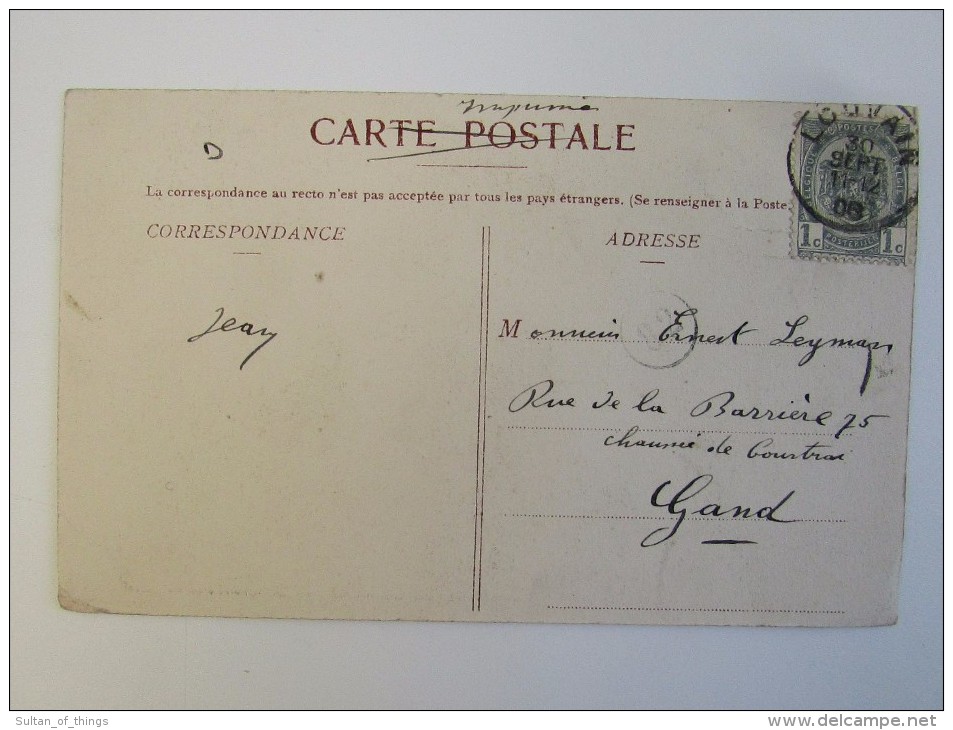 Imprimé
CARTE POSTALE
D
La correspondance au recto n'est pas acceptée par tous les pays étrangers. (Se renseigner à la Poste
CORRESPONDANCE
ADRESSE
LOUVAIN
30
SEPT
11-12
08
POSTES
1c 1c
Jean
Monsieur Ernest Leyman
Rue de la Barrière 75
chaussée de Courtrai
Gand
Sultan_of_things
www.delcampe.net